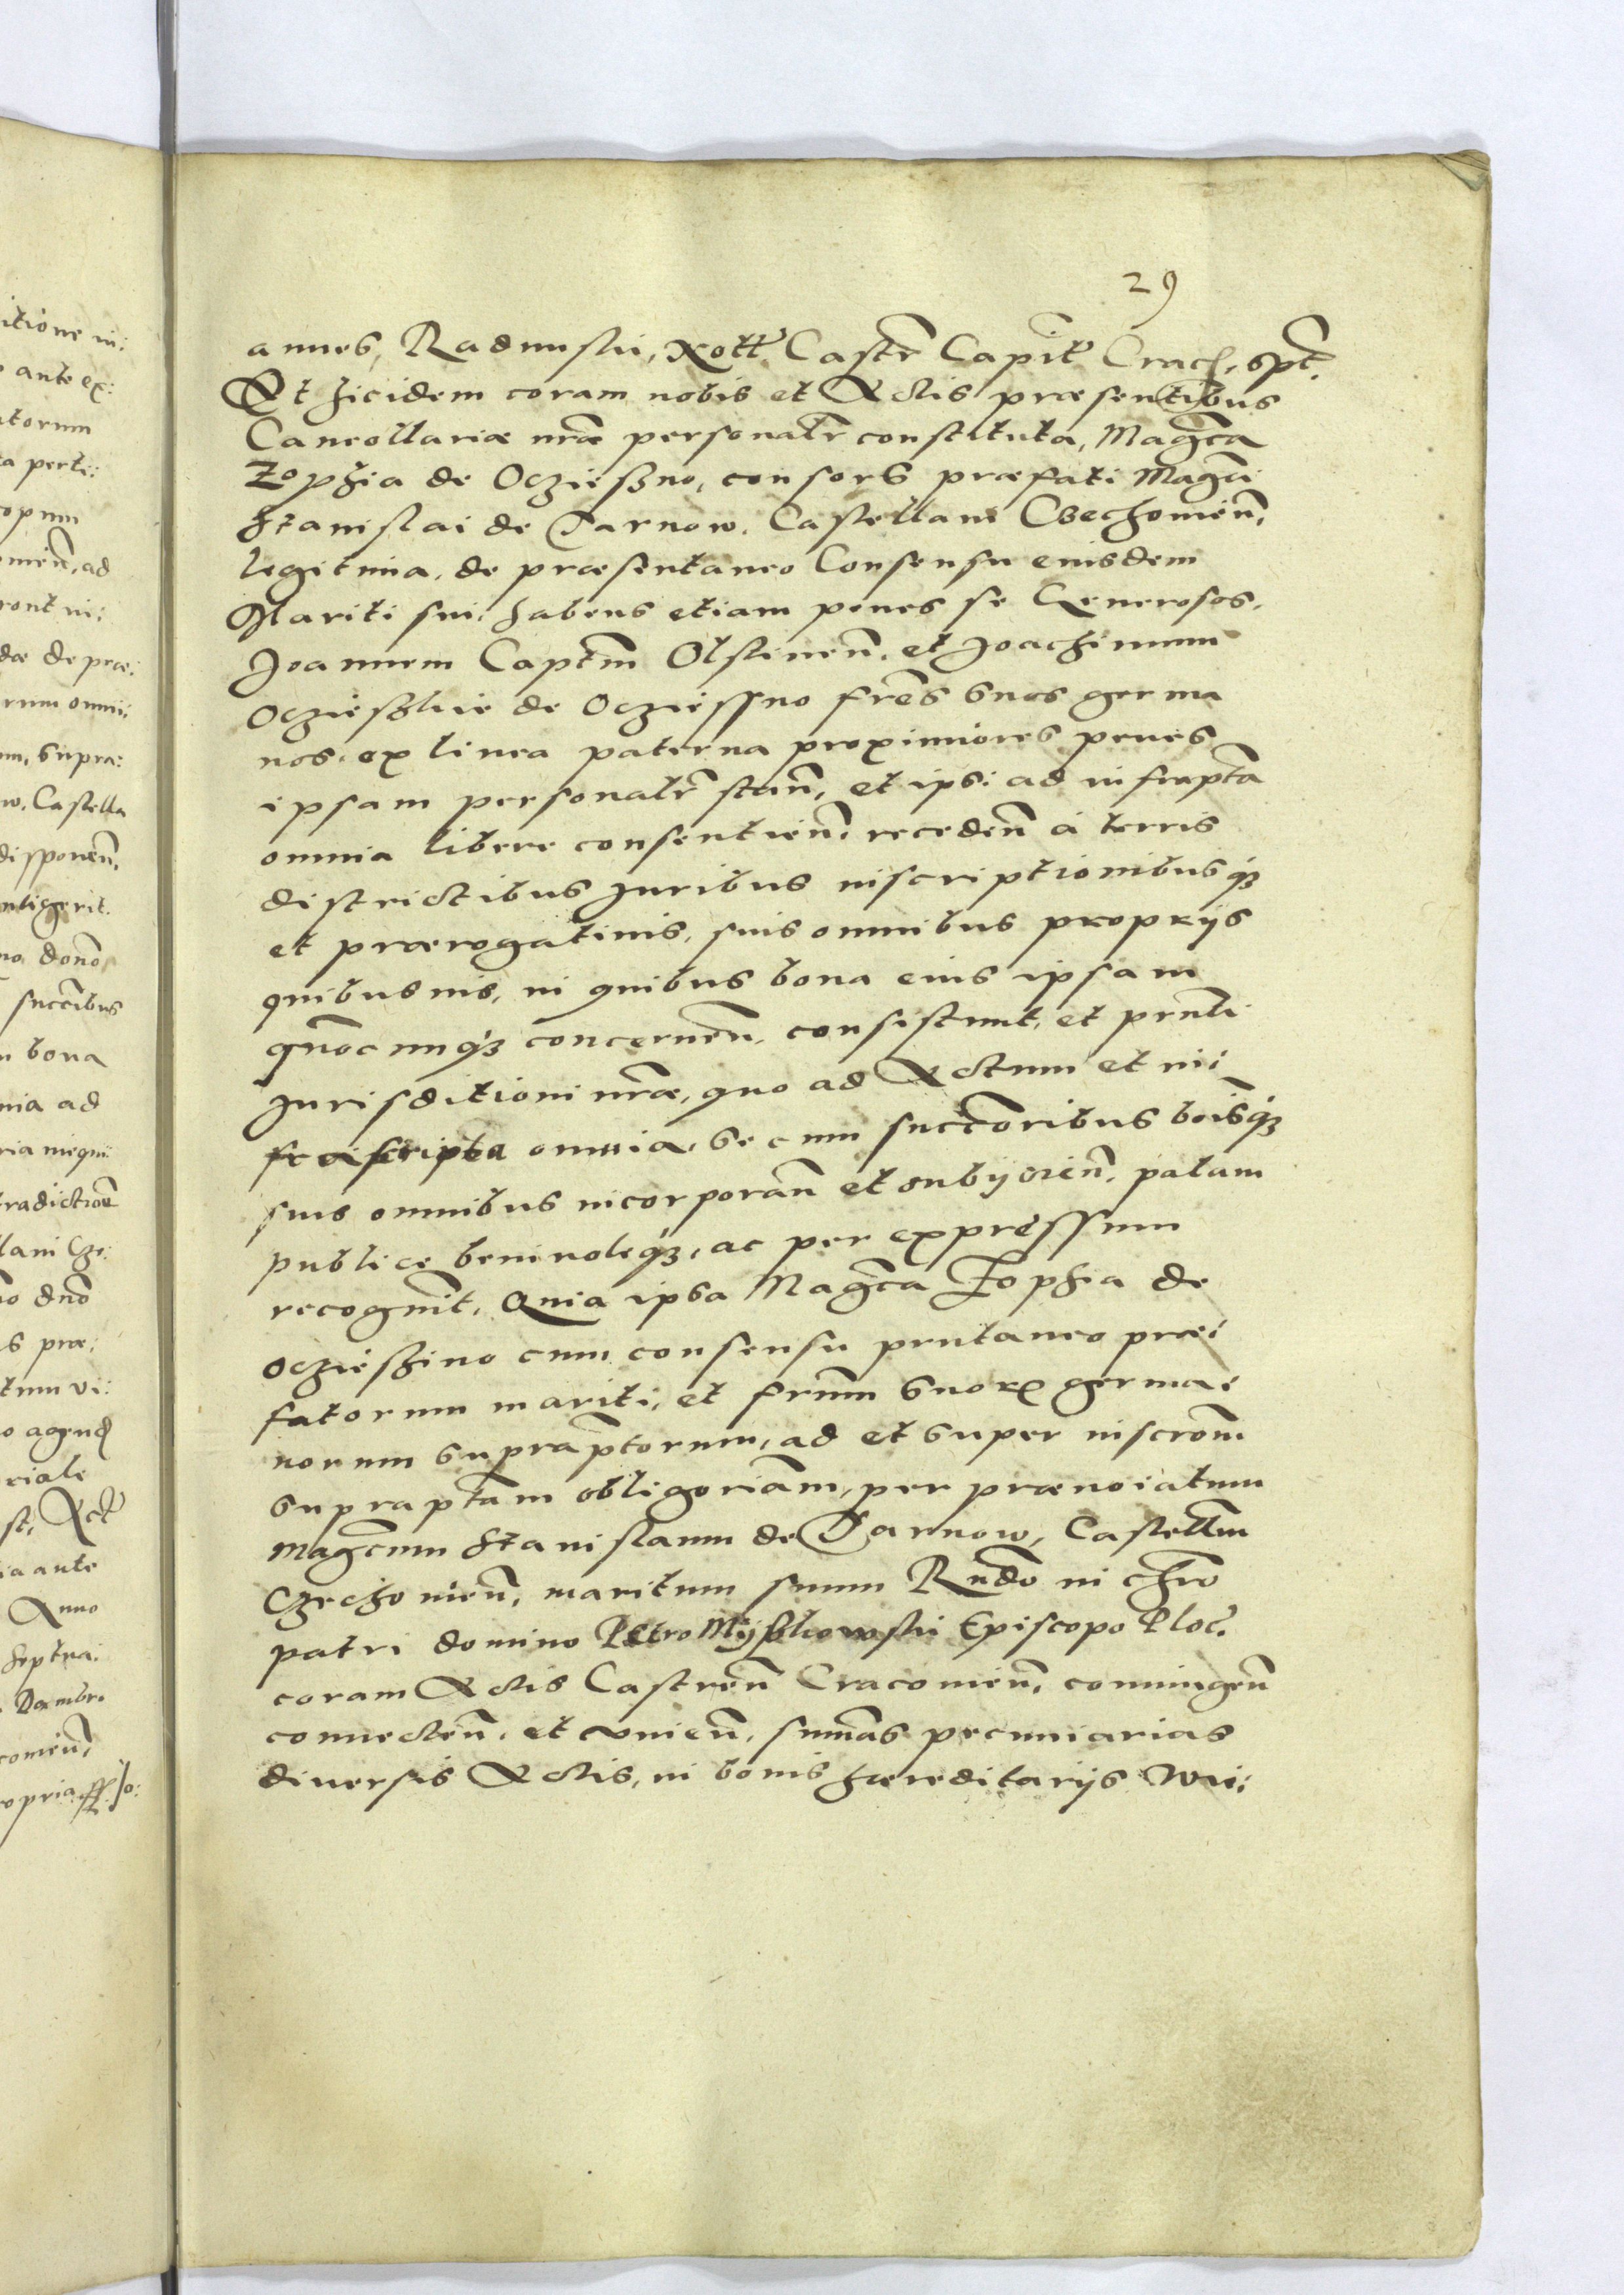 29
annes, Radunski, Nott Castr Capit Crach, spt.
Et ficidem coram nobis et Actis præsentibus
Cancellariæ nræ personalr constituta, Magca
Zophia de Oczießno, consors præfati Magci
Stanislai de Tarnow, Castellani Czechomien,
legitima, de præsentaneo Consensu eiusdem
Mariti sui, habens etiam penes se Generosos,
Joannem Captm Olstinen, et Joachimum
Oczießkie de Ocziessno fres suos germa
nos, ex linea paterna proximiores penes
ipsam personalr stan, et ipsi ad infrapta
omnia libere consentien, receden a terris
districtibus Juribus inscriptionibusq3
et prærogativis, suis omnibus proprijs
quibusvis, in quibus bona eius ipsam
quocunq3 concernen, consistunt, et prnti
Jurisditioni nræ, quo ad Actum et in:
frascripta omnia, secum succoribus boisq3
suis omnibus incorporan et subijcien, palam
publice benivoleq3, ac per expressum
recognovit, Quia ipsa Magca Zophia de
Oczießino cum consensu prntaneo præ:
fatorum mariti, et frum suorum germa:
norum supraptorum, ad et super inscrom
supraptam obligoriam, per prænoiatum
Magcum Stanislaum de Tarnow, Castellm
Czechomien, maritum suum Rndo in chro
patri domino Petro Myßkowski Episcopo Ploc.
coram Actis Castren Cracomien, conningen
connecten, et unien, sumas pecuniarias
diversis Actis, in bonis hæreditarijs Wie:
itione in:
ante ex:
atorum
a perte:
opum
mien, ad
ront in:
dæ de præ:
rum omni:
m, supra:
w, Castella
disponen,
ntigerit.
no dono
succibus
n bona
nia ad
ria inequi:
tradictioe
llani Cze:
o dno
s præ:
tum vi:
o agend
riale
st, Act
ia ante
Anno
septua:
Decembr.
comien,
opria